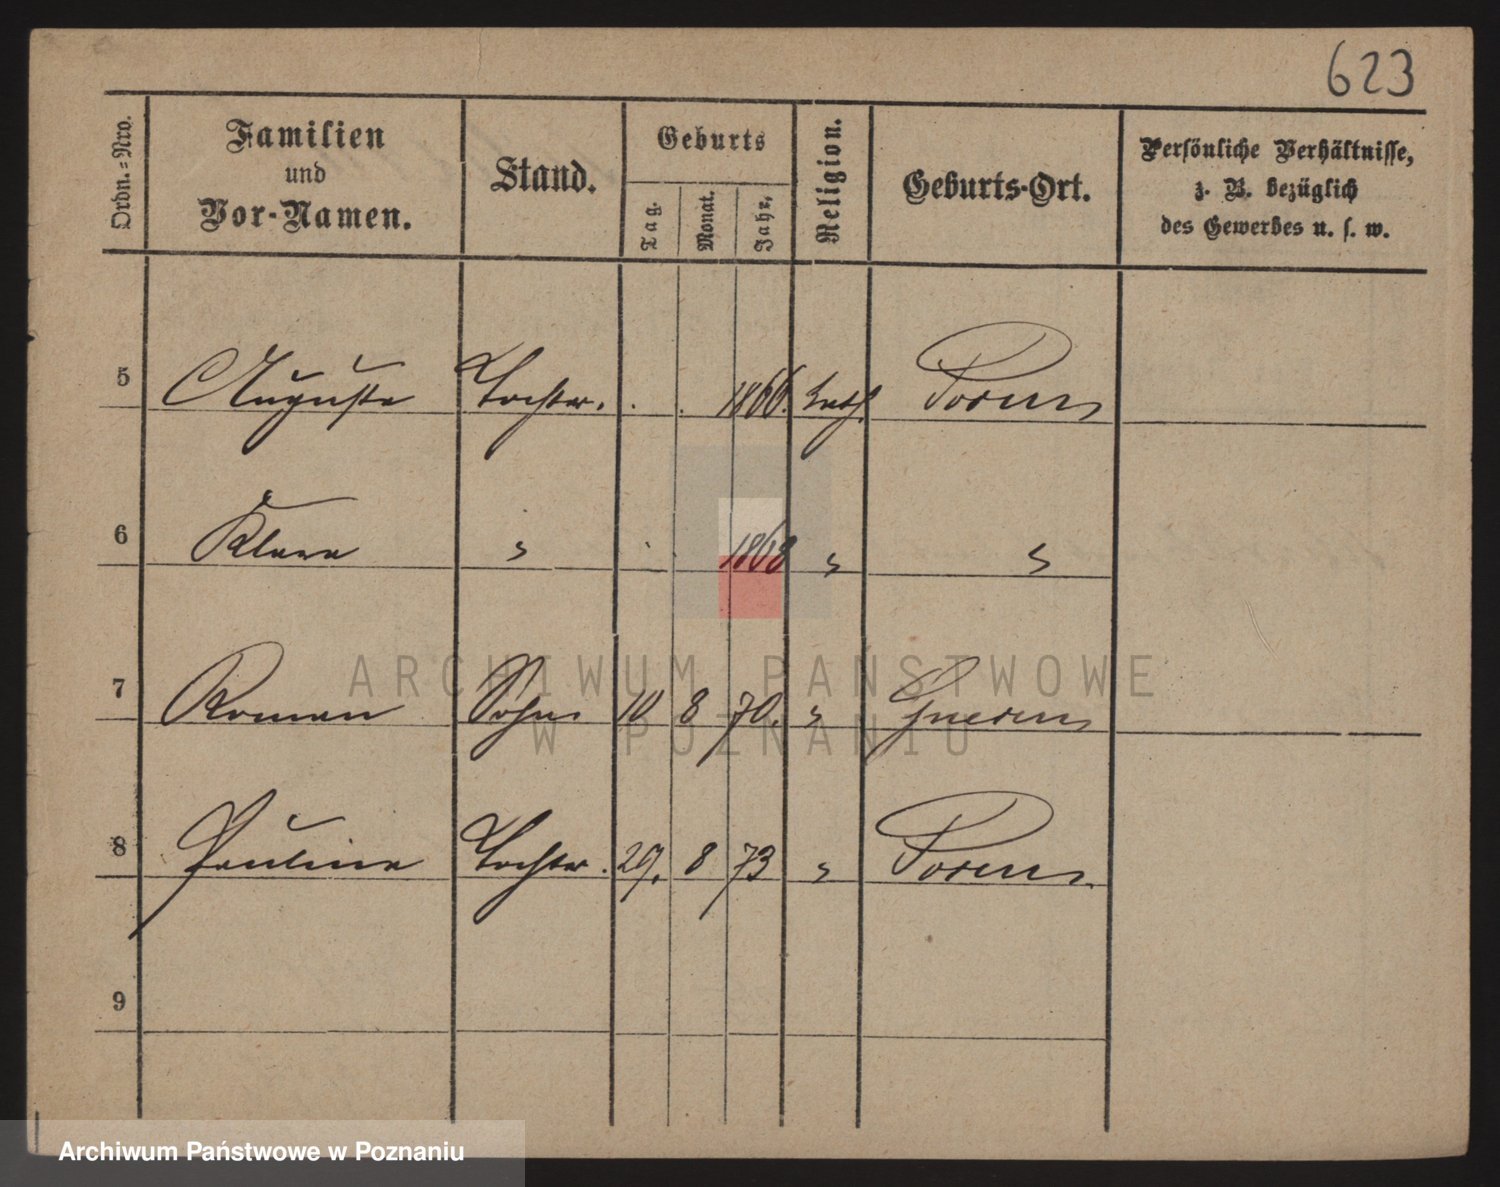 623
Ordn.=Nro.
Familien
und
Vor-Namen.
Stand.
Geburts
Tag.
Monat.
Jahr,
Religion.
Geburts-Ort.
Persönliche Verhältnisse,
z. B. bezüglich
des Gewerbes u. s. w.
5 Auguste Tochter. . . 1866. kath. Posen
6 Klara " . . 1868 " "
7 Roman Sohn 10 8 70. " Gnesen
8 Pauline Tochter. 29. 8 73 " Posen.
9
ARCHIWUM PAŃSTWOWE
W POZNANIU
Archiwum Państwowe w Poznaniu